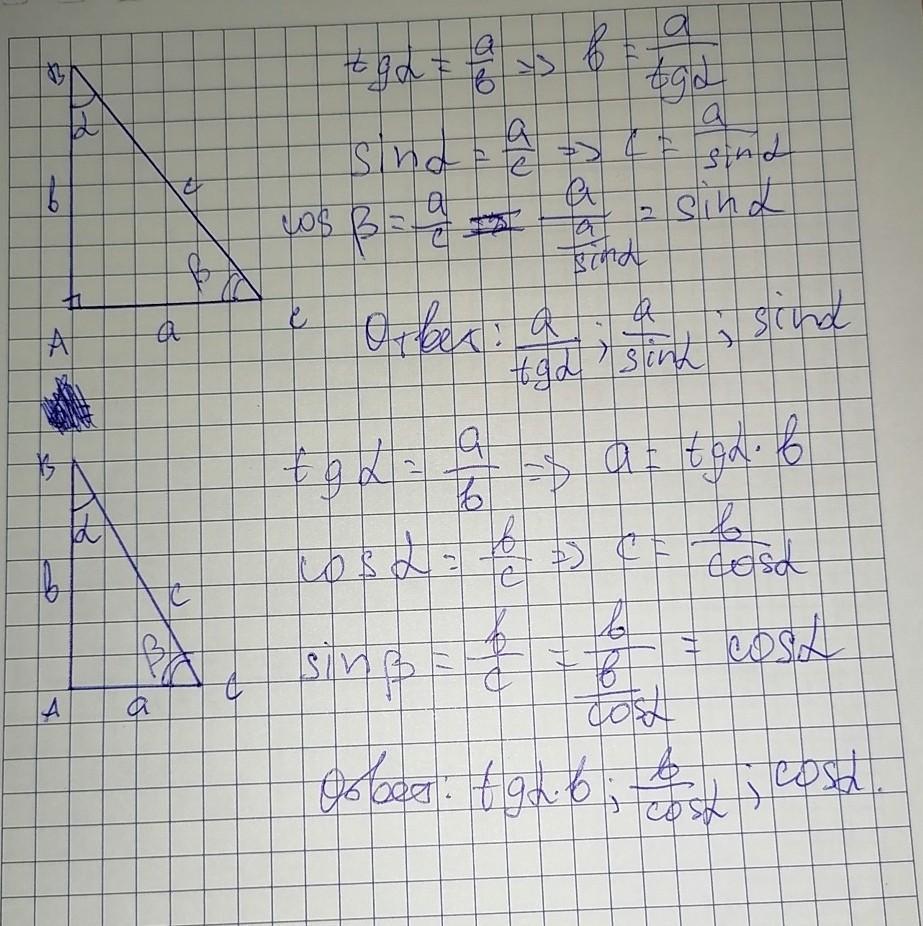 B
α
b
c
β
A
a
c
tgα = a/b => b = a/tgα
sinα = a/c => c = a/sinα
cos β = a/c = a/(a/sinα) = sinα
Ответ: a/tgα ; a/sinα ; sinα
B
α
b
c
β
A
a
C
tgα = a/b => a = tgα · b
cosα = b/c => c = b/cosα
sinβ = b/c = b/(b/cosα) = cosα
Ответ: tgα·b ; b/cosα ; cosα.